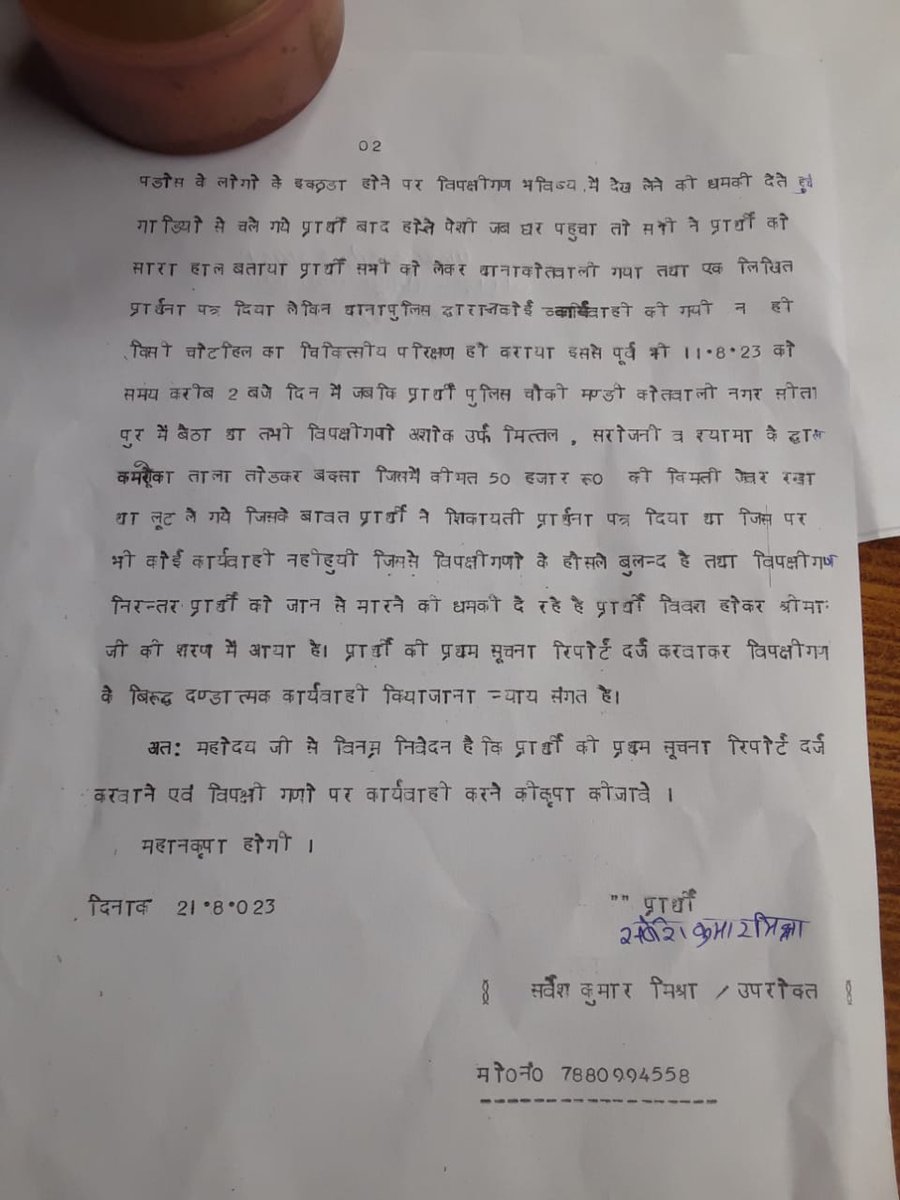 02
पडोस के लोगो के इक्ठ्ठा होने पर विपक्षीगण भविष्य में देख लेने की धमकी देते हुये
गाडियो से चले गये प्रार्थी बाद होने पेशी जब घर पहुचा तो सभी ने प्रार्थी को
सारा हाल बताया प्रार्थी सभी को लेकर थानाकोतवाली गया तथा एक लिखित
प्रार्थना पत्र दिया लेकिन थानापुलिस द्वारा नकोई कार्यवाही की गयी न ही
किसी चोटहिल का चिकित्सीय परिक्षण ही कराया इससे पूर्व भी 11.8.23 को
समय करीब 2 बजे दिन में जबकि प्रार्थी पुलिस चौकी मण्डी कोतवाली नगर सीता
पुर में बैठा था तभी विपक्षीगणो अशोक उर्फ मित्तल , सरोजनी व श्यामा के द्वारा
कमरे का ताला तोडकर बक्सा जिसमें कीमत 50 हजार रू0 की किमती जेवर रखा
था लूट ले गये जिसके बावत प्रार्थी ने शिकायती प्रार्थना पत्र दिया था जिस पर
भी कोई कार्यवाही नहीहुयी जिससे विपक्षीगणो के हौसले बुलन्द है तथा विपक्षीगण
निरन्तर प्रार्थी को जान से मारने की धमकी दे रहे है प्रार्थी विवश होकर श्रीमान
जी की शरण में आया है। प्रार्थी की प्रथम सूचना रिपोर्ट दर्ज करवाकर विपक्षीगण
के बिरूद्ध दण्डात्मक कार्यवाही कियाजाना न्याय संगत है।
अत: महोदय जी से विनम्र निवेदन है कि प्रार्थी की प्रथम सूचना रिपोर्ट दर्ज
करवाने एवं विपक्षी गणो पर कार्यवाही करने कीकृपा कीजावे ।
महानकृपा होगी ।
दिनाक 21.8.023
"" प्रार्थी
सर्वेश कुमार मिश्रा
सर्वेश कुमार मिश्रा / उपरोक्त
मो0नं0 7880994558